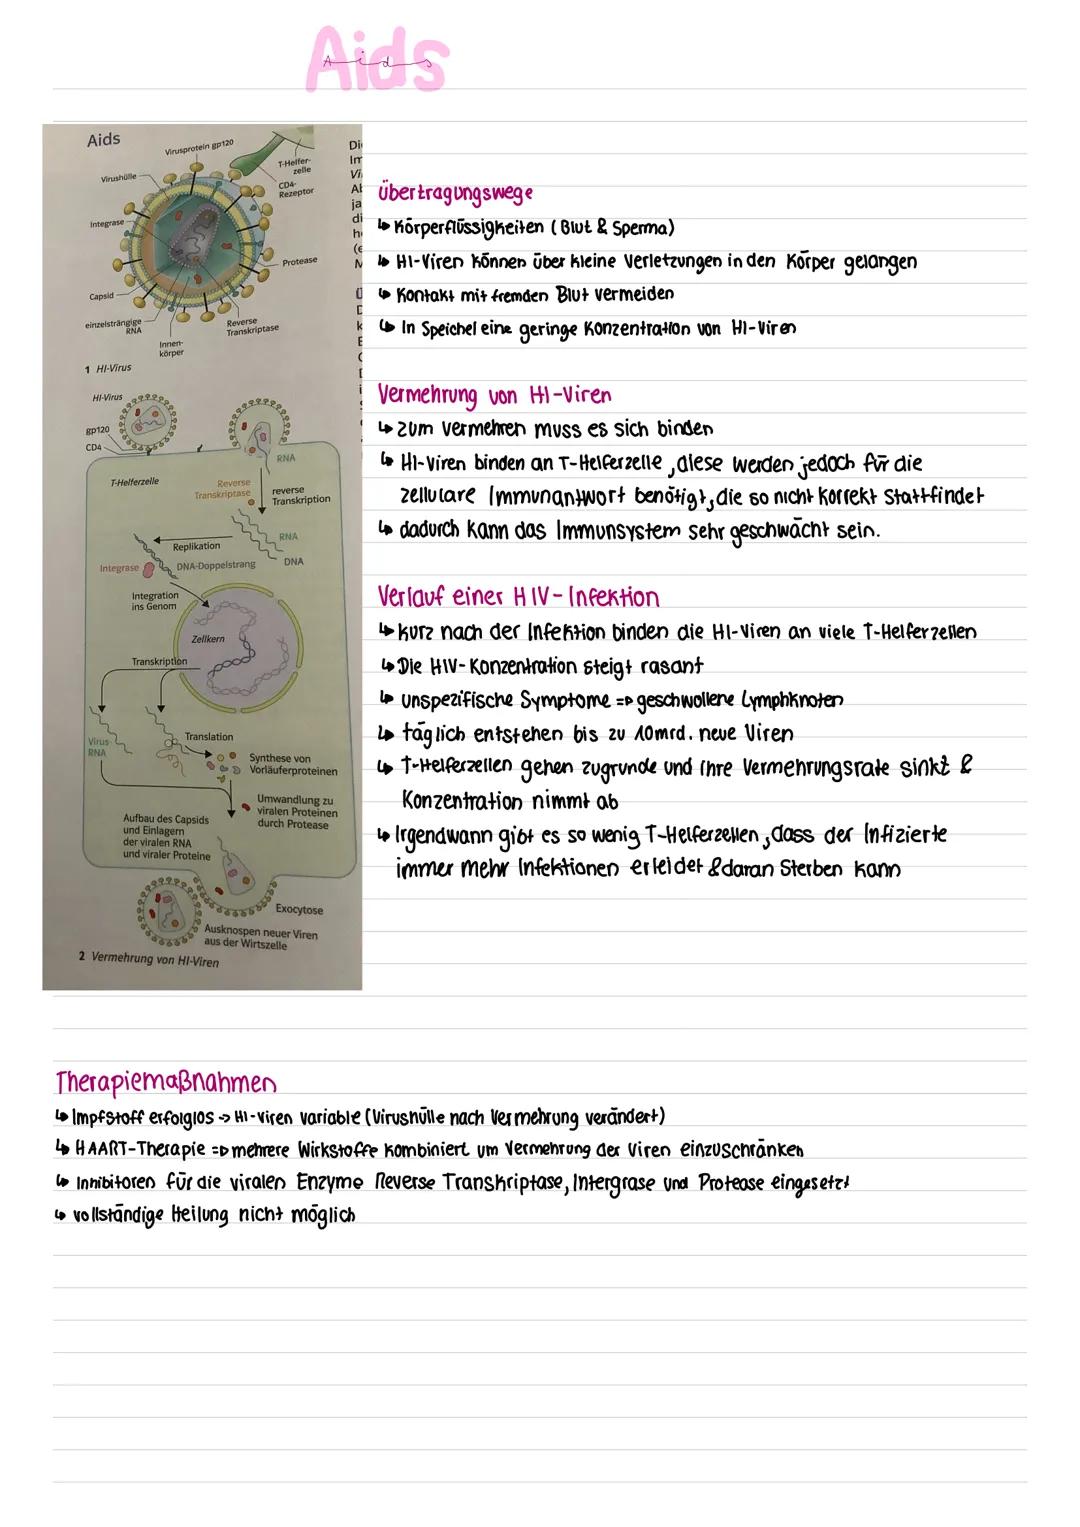 Aids
Aids
Aids
Virusprotein gp120
T-Helfer-
zelle
Virushülle
CD4-
Rezeptor
Integrase
Protease
Capsid
einzelsträngige
RNA
Reverse
Transkriptase
Innen-
körper
1 HI-Virus
HI-Virus
gp120
CD4
RNA
T-Helferzelle
Reverse
Transkriptase
reverse
Transkription
RNA
Replikation
Integrase
DNA-Doppelstrang
DNA
Integration
ins Genom
Zellkern
Transkription
Virus
RNA
Translation
Synthese von
Vorläuferproteinen
Umwandlung zu
viralen Proteinen
durch Protease
Aufbau des Capsids
und Einlagern
der viralen RNA
und viraler Proteine
Exocytose
Ausknospen neuer Viren
aus der Wirtszelle
2 Vermehrung von HI-Viren
Übertragungswege
↳ Körperflüssigkeiten (Blut & Sperma)
↳ HI-Viren können über kleine Verletzungen in den Körper gelangen
↳ Kontakt mit fremden Blut vermeiden
↳ In Speichel eine geringe Konzentration von HI-Viren
Vermehrung von HI-Viren
↳ zum Vermehren muss es sich binden
↳ HI-Viren binden an T-Helferzelle, diese werden jedoch für die
zellulare Immunantwort benötigt, die so nicht korrekt stattfindet
↳ dadurch kann das Immunsystem sehr geschwächt sein.
Verlauf einer HIV-Infektion
↳ kurz nach der Infektion binden die HI-Viren an viele T-Helferzellen
↳ Die HIV-Konzentration steigt rasant
↳ unspezifische Symptome => geschwollene Lymphknoten
↳ täglich entstehen bis zu 10mrd. neue Viren
↳ T-Helferzellen gehen zugrunde und ihre Vermehrungsrate sinkt &
Konzentration nimmt ab
↳ Irgendwann gibt es so wenig T-Helferzellen, dass der Infizierte
immer mehr Infektionen erleidet & daran Sterben kann
Therapiemaßnahmen
↳ Impfstoff erfolglos -> HI-Viren variable (Virushülle nach Vermehrung verändert)
↳ HAART-Therapie => mehrere Wirkstoffe kombiniert um Vermehrung der Viren einzuschränken
↳ Inhibitoren für die viralen Enzyme Reverse Transkriptase, Intergrase und Protease eingesetzt
↳ vollständige Heilung nicht möglich